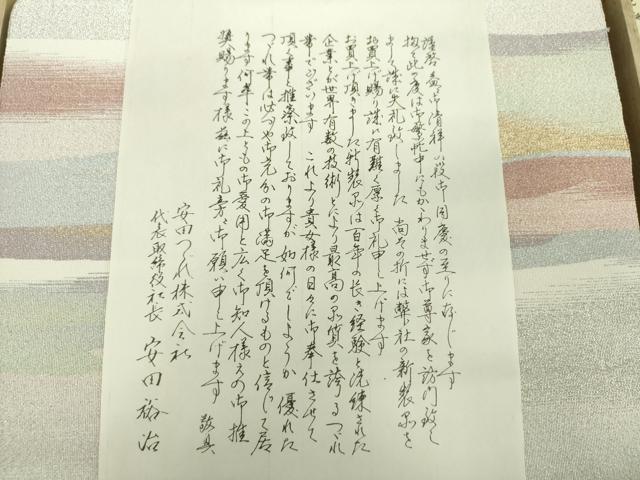 謹啓 益々御清祥の段御同慶の至りに存じます
扨て此の度は御繁忙中にもかかわりませず御尊家を訪門致し
まして誠に失礼致しました 尚その折には弊社の新装品を
お買上げ賜り誠に有難く厚く御礼申し上げます
お買上げ頂きました新装品は百年の長き経験と洗練された
企業と世界有数の技術とにより最高の品質を誇るつづれ
帯でございます これより貴女様の日々に御奉仕させて
頂く事と推察致しておりますが如何でしょうか 優れた
つづれ帯は必ずや御充分の御満足を頂けるものと信じて居
ります何卒この上とも御愛用と広く御知人様えの御推
奨賜ります様茲に御礼旁々御願い申し上げます
敬具
安田つづれ株式会社
代表取締役社長 安田裕治